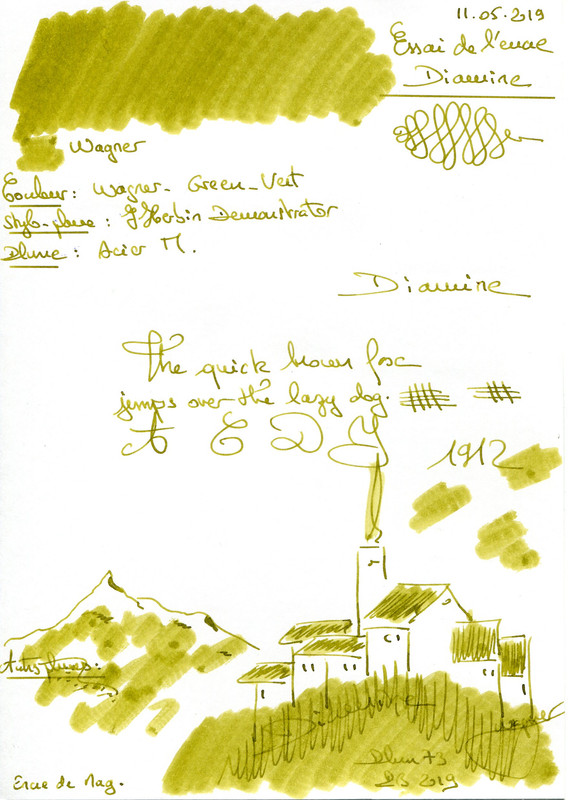 11.05.2019
Essai de l'encre
Diamine
Wagner
Couleur: Wagner - Green - Vert
Stylo-plume: J Herbin Demonstrator
Plume: Acier M.
Diamine
The quick brown fox
jumps over the lazy dog.
A C D Y
1912
Diamine
Wagner
2019